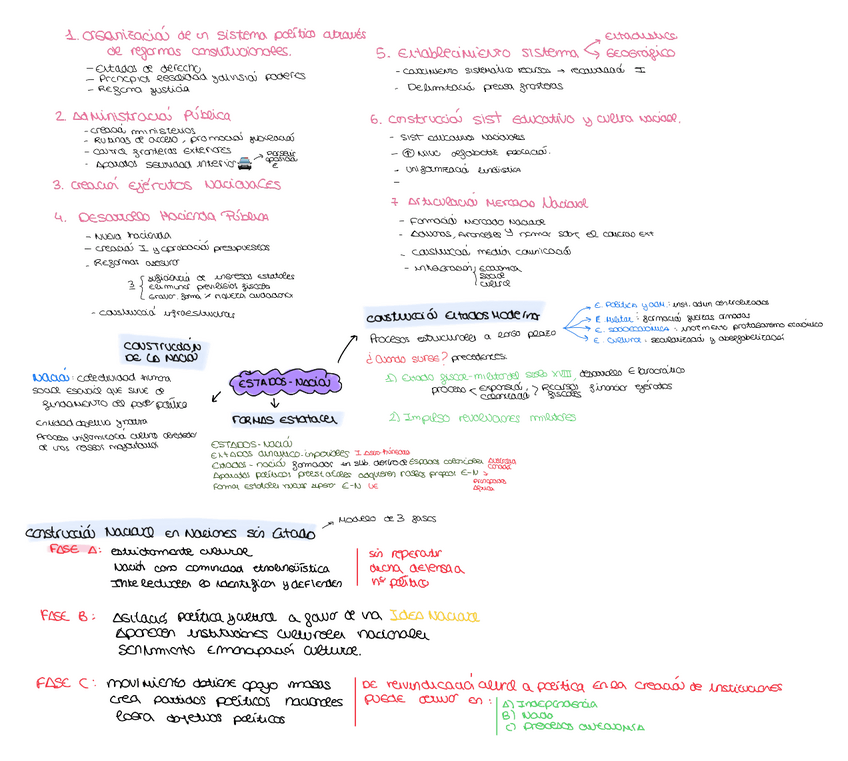 1. Organización de un sistema político através
de reformas constitucionales.
- Estados de derecho
- Principios legalidad y división poderes
- Reforma justicia
2. Administración Pública
- creación ministerios
- Rutinas de acceso, promoción, jubilación
- control fronteras exteriores
- Aparatos seguridad interior
3. creación Ejércitos Nacionales
4. Desarrollo Hacienda Pública
- Nueva hacienda
- creación I y aprobación presupuestos
- Reformas
3 suficiencia de ingresos estatales
eliminar privilegios fiscales
gravar forma x riqueza ciudadanos
- construcció infraestructuras
Estadístico
5. Establecimiento sistema
Geográfico
- conocimiento sistemático recursos → recaudació I
- Delimitació precisa fronteras
6. construcció sist educativo y cultura nacional.
- Sist educativos nacionales
- ↑ Nivel població.
- unificació lingüística
-
7 Articulació Mercado Nacional
- Formació Mercado Nacional
- Aduanas, Aranceles y normas sobre el comercio ext
- construcció medios comunicació
- Integració Económica
social
cultural
construcció Estados Moderno
Procesos estructurales a largo plazo
E. Político y adm: inst. admin centralizadas
E. Militar: formació fuerzas armadas
E. socioeconómica: protagonismo económico
E. cultural: secularizació y alfabetizació
¿Cuando surge? precedentes.
1) Estado fiscal-militar del siglo XVIII, desarrollo E burocrático
proceso expansió, colonizació > Recursos fiscales financiar ejércitos
2) Impulso revoluciones militares
construcción
de la nació
Nació: colectividad humana
social esencial que sirve de
fundamento del poder político
Entidad objetiva y nativa
Proceso uniformizació cultural alrededor
de unos rasgos mayoritarios
ESTADOS-Nació
FORMAS Estatales
ESTADOS-Nació
Estados dinástico-imperiales I
Estados-nació formados en sXIX dentro de espacios coloniales
Aparatos políticos preestatales adquieren rasgos propios E-N
Formas estatales nuevas supera E-N UE
construcció Nacional en Naciones sin Estado
→ Modelo de 3 fases
FASE A: estrictamente cultural
Nació como comunidad etnolingüística
Intelectuales lo identifican y defienden
sin repercutir
dicha defensa a
nº político
FASE B: Agitació política y cultural a favor de una IDEA Nacional
Aparecen instituciones culturales nacionales
sentimiento emancipació cultural.
FASE C: movimiento obtiene apoyo masas
crea partidos políticos nacionales
logra objetivos políticos
DE reivindicació cultural a política en la creació de instituciones
puede derivar en:
A) Independencia
B) Nada
C) Procesos autonomía